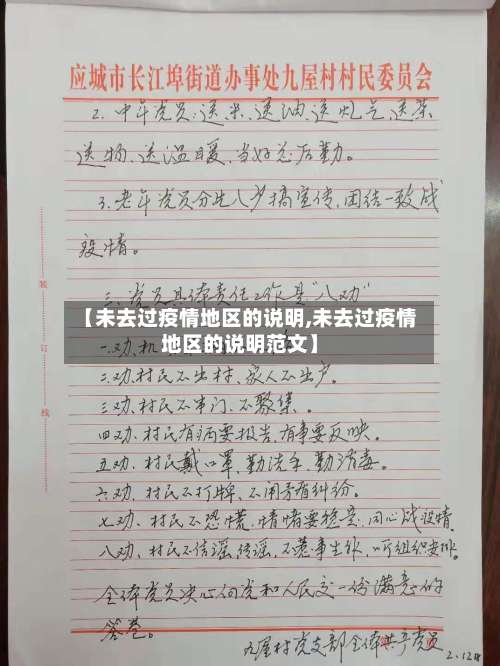 应城市长江埠街道办事处九屋村村民委员会
2. 中年党员:送米、送油、送灶气、送菜
送物、送温暖,当好总后勤。
3. 老年党员分片入户搞宣传,团结一致战
疫情。
三、党员具体责任工作是“八劝”
【未去过疫情地区的说明,未去过疫情
地区的说明范文】
一劝、机
二劝、村民不出村、家人不出户。
三劝、村民不串门、不聚集。
四劝、村民有病要报告,有事要反映。
五劝、村民戴口罩,勤洗手、勤消毒。
六劝、村民不打牌、不闹矛盾纠纷。
七劝、村民不恐慌、情绪要稳定,同心战役情。
八劝、村民不信谣、传谣,不惹事生非,听组织安排。
全体党员决心向党和人民交一份满意的
答卷。
九屋村党支部全体共产党员
2.12日
装
订
线